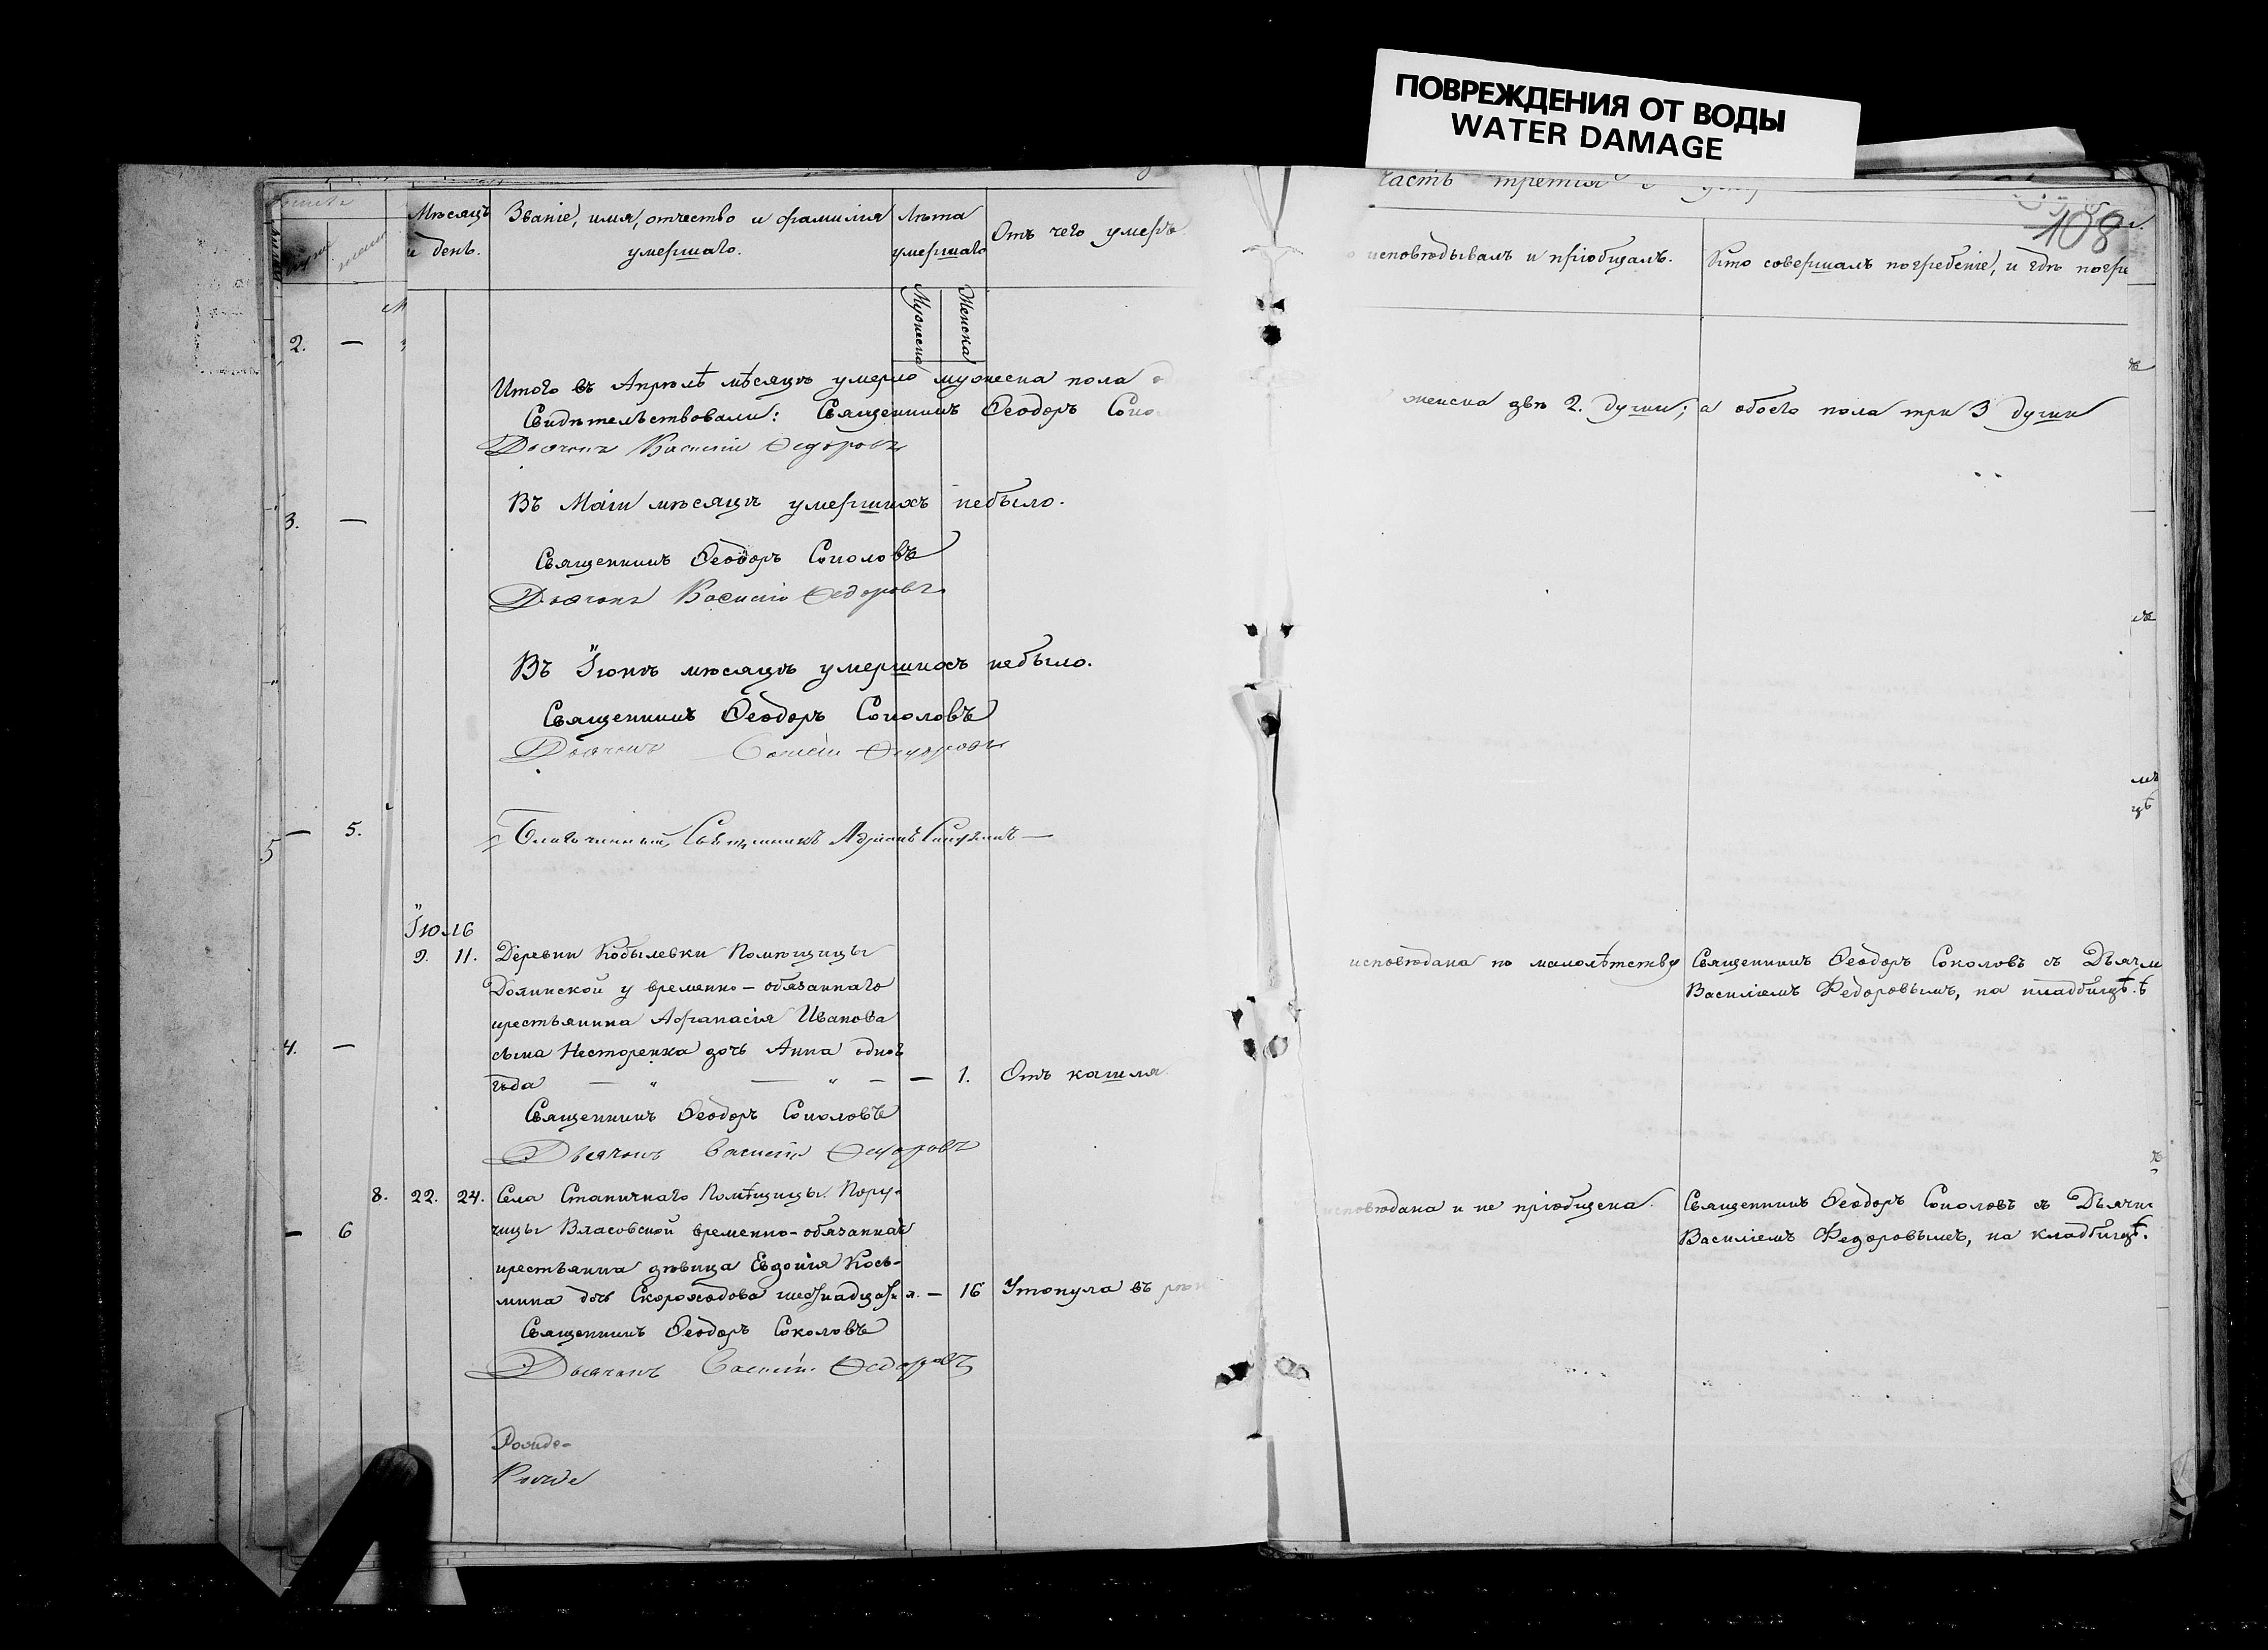 ПОВРЕЖДЕНИЯ ОТ ВОДЫ
WATER DAMAGE
108
Мѣсяцъ и день.
Званіе, имя, отчество и фамилія умершаго.
Лѣта умершаго
Мужеска
Женска
Отъ чего умеръ
часть третія
исповѣдывалъ и пріобщалъ.
Кто совершалъ погребеніе, и гдѣ погре
2. —
3. —
— 5.
5
4. —
— 6
Итого въ Апрѣлѣ мѣсяцѣ умерло мужеска пола
женска двѣ 2. души; а обоего пола три 3 души
Свидѣтельствовали: Священникъ Ѳеодоръ Соко
Дьячокъ Василій Ѳедоровъ
Въ Маіи мѣсяцѣ умершихъ небыло.
Священникъ Ѳеодоръ Соколовъ
Дьячокъ Василій Ѳедоровъ
Въ Іюнѣ мѣсяцѣ умершихъ небыло.
Священникъ Ѳеодоръ Соколовъ
Дьячокъ Василій Ѳедоровъ
Благочинный, Священникъ Адріанъ
Іюль
9. 11. Деревни Кобылевки Помѣщицы
Долинской у временно-обязаннаго
крестьянина Афанасія Иванова
сына Несторенка дочь Анна одного
года — " — " — — 1. Отъ кашля
исповѣдана по малолѣтству
Священникъ Ѳеодоръ Соколовъ съ Дьячк
Василіемъ Федоровымъ, на кладбищѣ.
Священникъ Ѳеодоръ Соколовъ
Дьячокъ Василій Ѳедоровъ
8. 22. 24. Села Станичнаго Помѣщицы Пору-
чицы Власовской временно-обязанная
крестьянка дѣвица Евдокія Козь-
мина дочь Скороходова шестнадцати л. — 16 Утонула въ
исповѣдана и не пріобщена.
Священникъ Ѳеодоръ Соколовъ съ Дьячк
Василіемъ Федоровымъ, на кладбищѣ.
Священникъ Ѳеодоръ Соколовъ
Дьячокъ Василій Ѳедоровъ